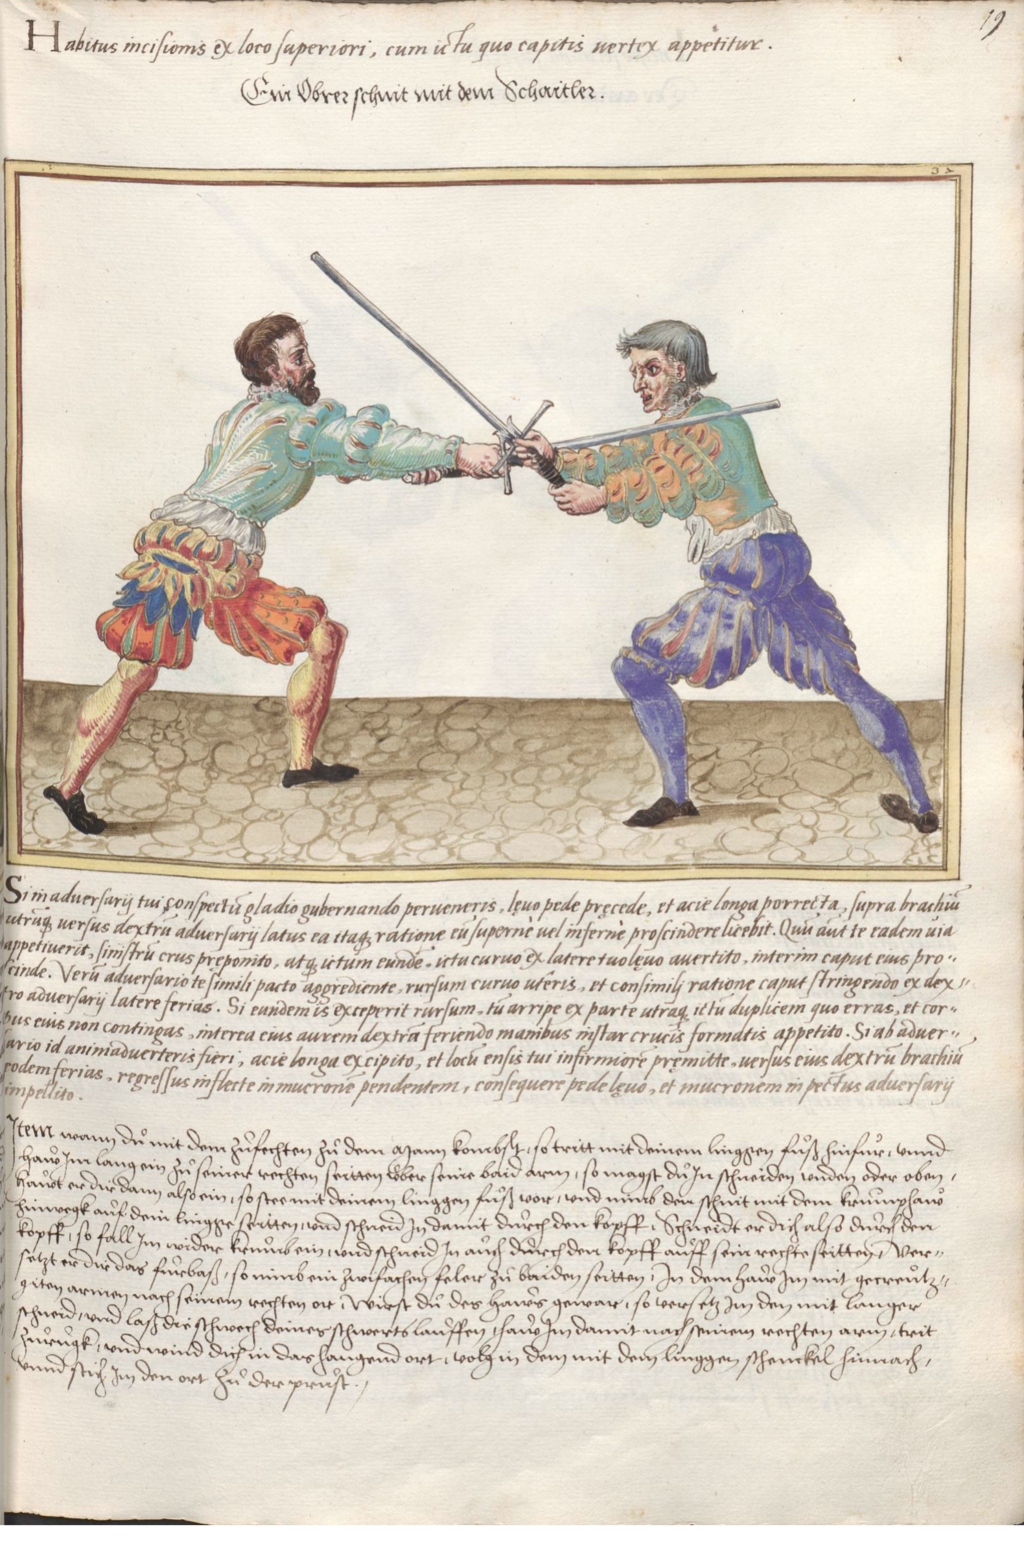 19
Habitus incisionis ex loco superiori, cum ictu quo capitis vertex appetitur.
Ein Obrer schnit mit dem Schaitler.
32
Si in adversarij tui conspectu gladio gubernando perveneris, lęvo pede pręcede, et acie longa porrecta, supra brachiu
utruq, versus dextru adversarij latus ea itaq, ratione eu superne vel inferne proscindere licebit. Quu aut te eadem via
appetiverit, sinistru crus preponito, atq, ictum eunde, ictu curvo ex latere tuo lęvo avertito, interim caput eius pro-
cinde. Veru adversario te simili pacto aggrediente, rursum curvo uteris, et consimili ratione caput stringendo ex dex-
ro adversarij latere ferias. Si eundem is exceperit rursum, tu arripe ex parte utraq, ictu duplicem quo erras, et cor-
pus eius non contingas, interea eius aurem dextra feriendo manibus instar crucis formatis appetito. Si ab adver-
sario id animadverteris fieri, acie longa excipito, et locu ensis tui infirmiore pręmitte, versus eius dextru brachiu
eodem ferias, regressus inflecte in mucrone pendentem, consequere pede lęvo, et mucronem in pectus adversarij
impellito.
Item wann du mit dem zufechten zu dem Mann kombst, so tritt mit deinem linggen fuß hinfur, unnd
haw Im lang ein zu seiner rechten seitten über seine baid arm, so magst du In schneiden unden oder oben,
Hawt er dir dann also ein, so stee mit deinem linggen fuß vor, und nimb den schnit mit dem krumphaw
hinwegk auf dein lingge seitten, und schneid In damit durch den kopff, Schneidt er dich also durch den
kopff, so fall Im wider krumb ein, und schneid In auch durch den kopff auff sein rechte seitten, Ver-
setzt er dir das furbaß, so nimb ein zwifachen feler zu baiden seitten, In dem haw Im mit gecreutz-
giten armen nach seinem rechten or, Wirst du des Haws gewar, so versetz Im den mit langer
schneid, und laß die schwech deines schwerts lauffen, haw Im damit nach seinem rechten arm, trit
zurugk, und wind dich in das hangend ort, volg in dem mit dem linggen schenckel hinnach,
unnd stich Im den ort zu der prust.